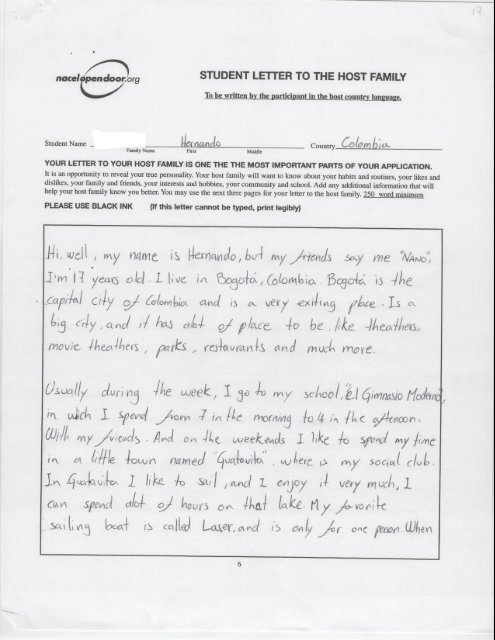 17
nacelopendoor.org
STUDENT LETTER TO THE HOST FAMILY
To be written by the participant in the host country language.
Student Name Hernando Country Colombia
Family Name First Middle
YOUR LETTER TO YOUR HOST FAMILY IS ONE THE THE MOST IMPORTANT PARTS OF YOUR APPLICATION.
It is an opportunity to reveal your true personality. Your host family will want to know about your habits and routines, your likes and
dislikes, your family and friends, your interests and hobbies, your community and school. Add any additional information that will
help your host family know you better. You may use the next three pages for your letter to the host family. 250 word minimum
PLEASE USE BLACK INK (If this letter cannot be typed, print legibly)
Hi, well, my name is Hernando, but my friends say me "NANO",
I'm 17 years old. I live in Bogotá, Colombia. Bogotá is the
capital city of Colombia and is a very exiting place. Is a
big city, and it has alot of place to be. like theathers,
movie theathers, parks, restavrants and much more.
Usually during the week, I go to my school, "El Gimnasio Moderno",
in wich I spend from 7 in the morning to 4 in the afternoon.
With my friends. And on the weekends I like to spend my time
in a little town named "Guatavita", where is my social club.
In Guatavita I like to sail, and I enjoy it very much, I
can spend alot of hours on that lake. My favorite
sailing boat is called Laser, and is only for one person. When
6